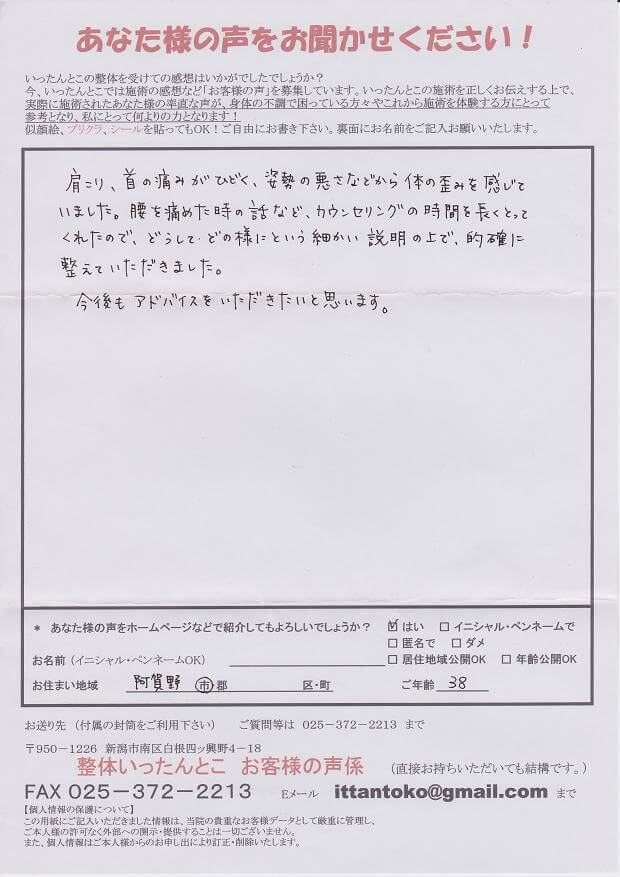 あなた様の声をお聞かせください！
いったんとこの整体を受けての感想はいかがでしたでしょうか？
今、いったんとこでは施術の感想など「お客様の声」を募集しています。いったんとこの施術を正しくお伝えする上で、
実際に施術されたあなた様の率直な声が、身体の不調で困っている方々やこれから施術を体験する方にとって
参考となり、私にとって何よりの力となります！
似顔絵、プリクラ、シールを貼ってもOK！ご自由にお書き下さい。裏面にお名前をご記入お願いいたします。
肩こり、首の痛みがひどく、姿勢の悪さなどから体の歪みを感じて
いました。腰を痛めた時の話など、カウンセリングの時間を長くとって
くれたので、どうして・どの様にという細かい説明の上で、的確に
整えていただきました。
今後もアドバイスをいただきたいと思います。
* あなた様の声をホームページなどで紹介してもよろしいでしょうか？ ☑はい □イニシャル・ペンネームで
□匿名で □ダメ
お名前（イニシャル・ペンネームOK） □居住地域公開OK □年齢公開OK
お住まい地域 阿賀野 市・郡 区・町 ご年齢 38
お送り先 （付属の封筒をご利用下さい） ご質問等は 025-372-2213 まで
〒950-1226 新潟市南区白根四ッ興野4-18
整体いったんとこ お客様の声係 （直接お持ちいただいても結構です。）
FAX 025-372-2213 Eメール ittantoko@gmail.com まで
【個人情報の保護について】
この用紙にご記入いただきました情報は、当院の貴重なお客様データとして厳重に管理し、
ご本人様の許可なく外部への開示・提供することは一切ございません。
また、個人情報はご本人様からのお申し出により訂正・削除いたします。